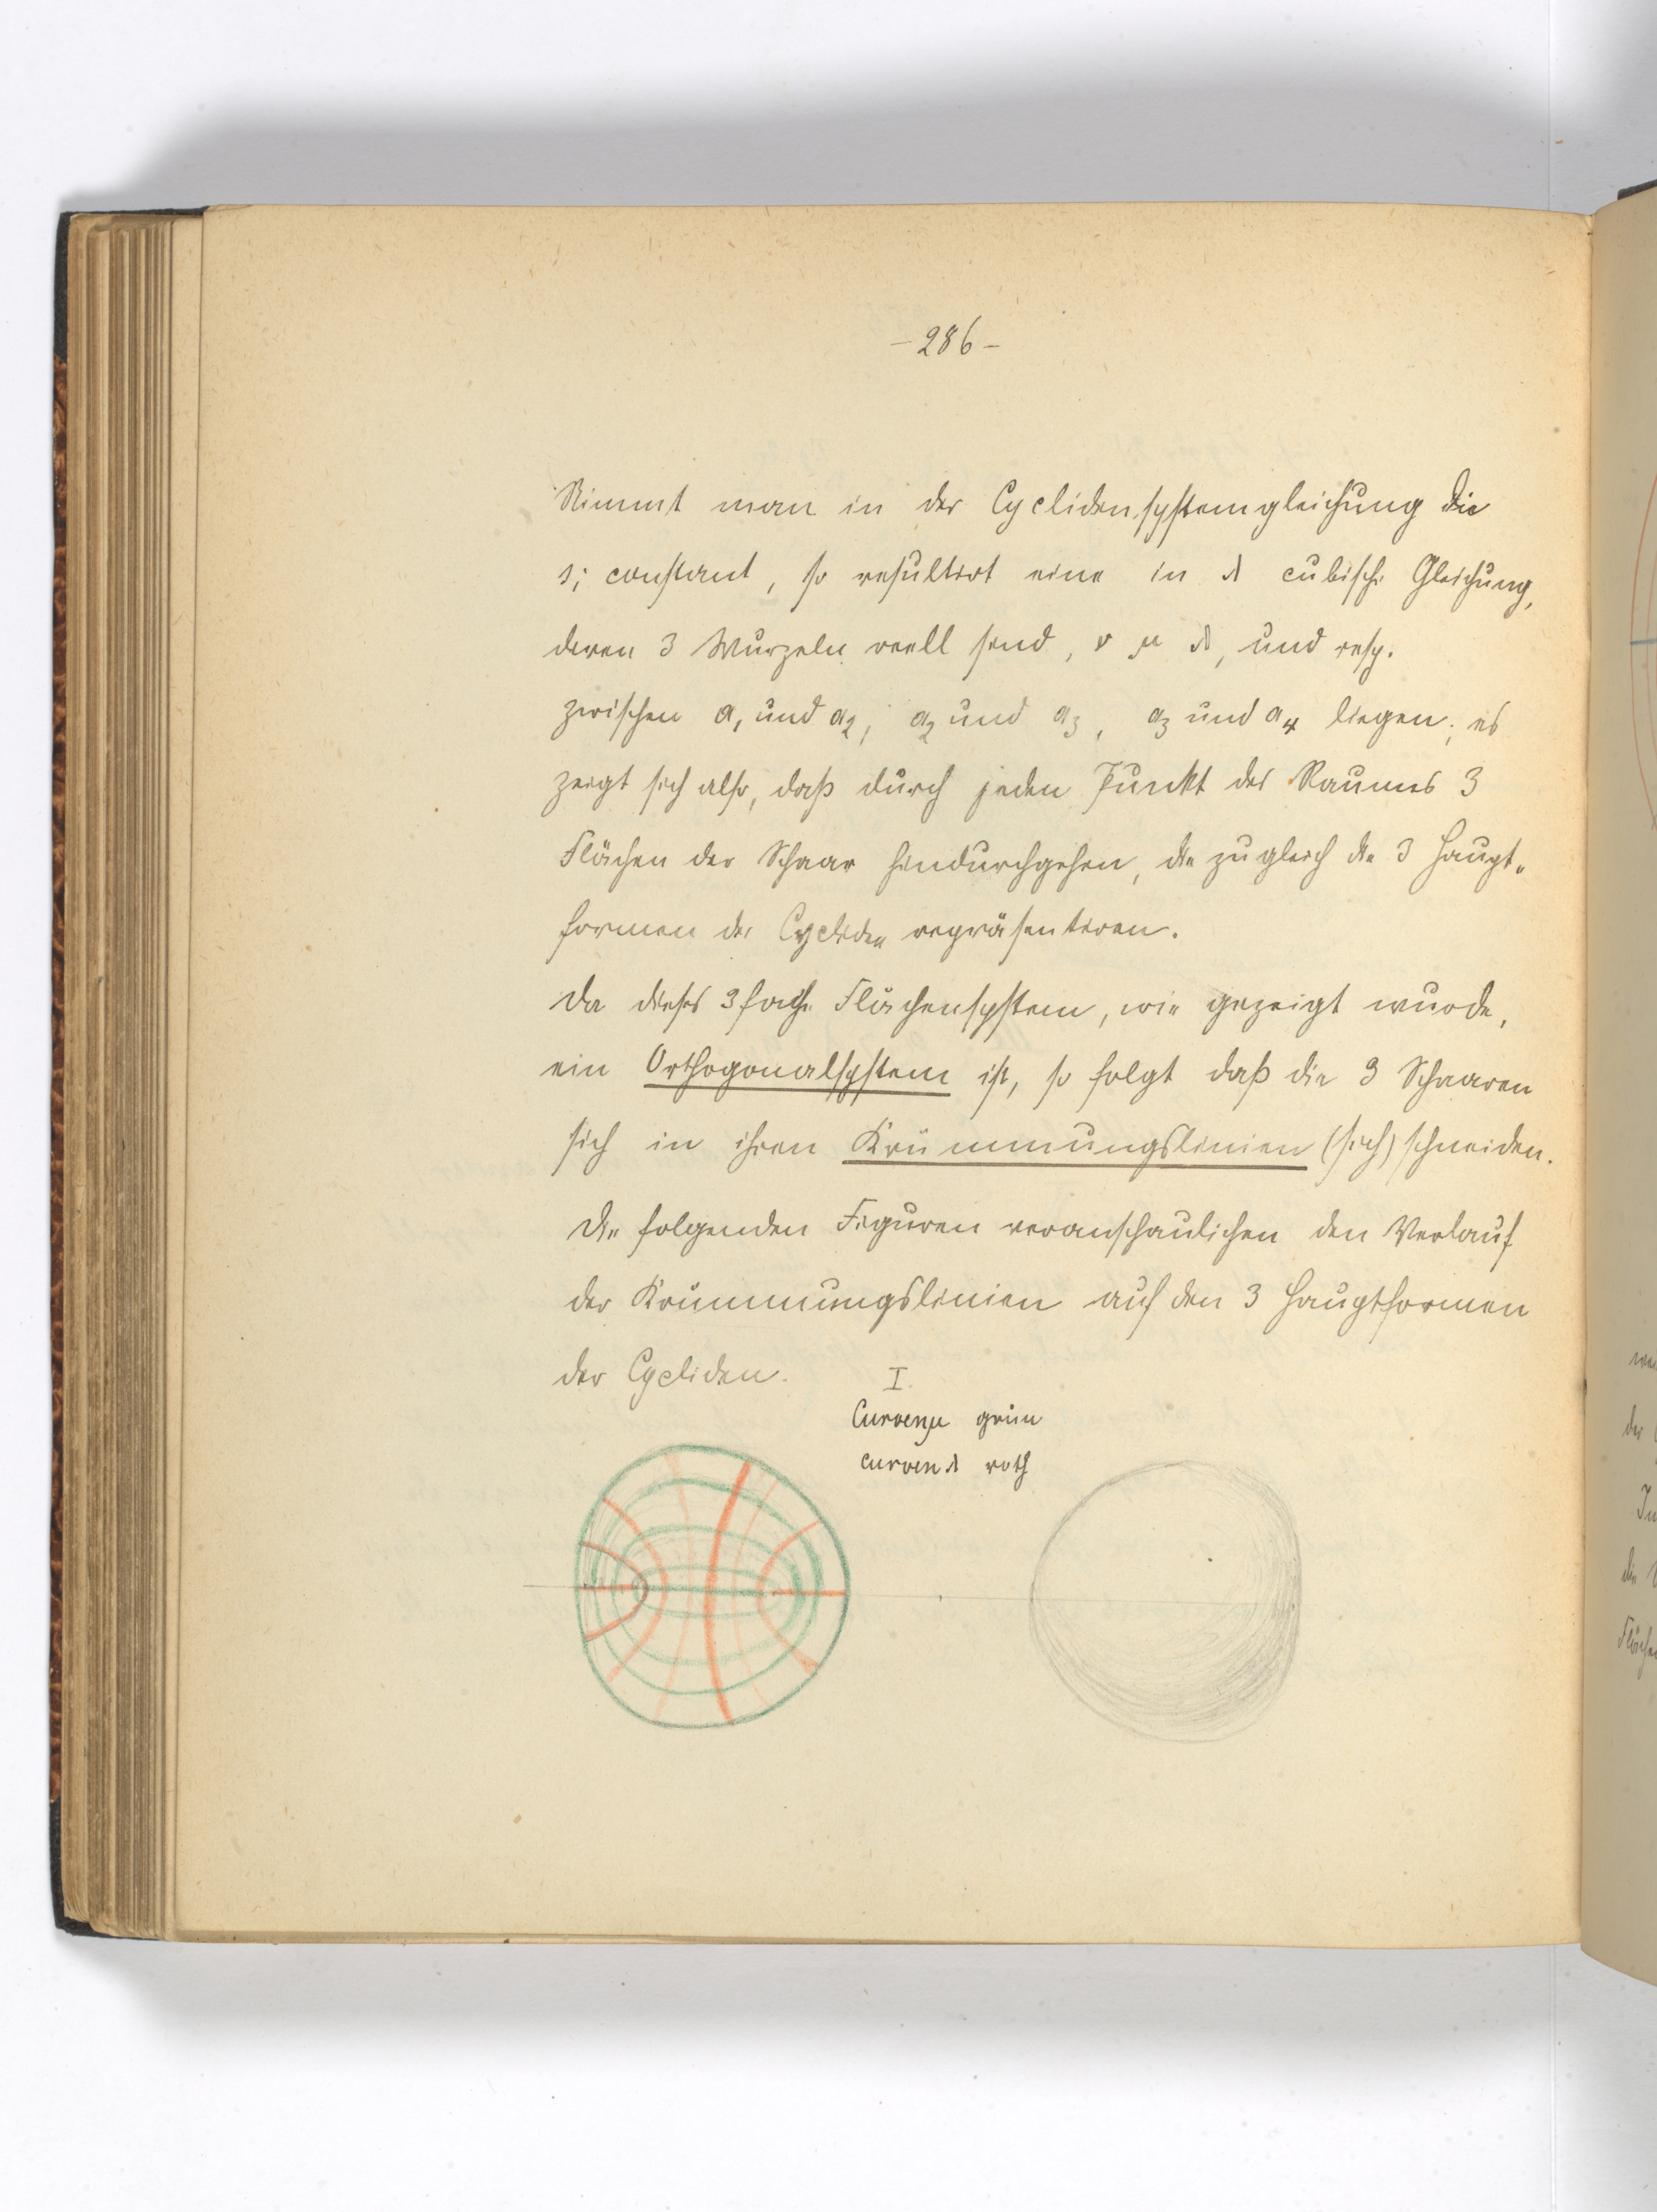 -286-
Nimmt man in der Cyclidensystemgleichung die
s; constant, so resultirt eine in λ cubische Gleichung,
deren 3 Wurzeln reell sind, ν μ λ, und resp.
zwischen a₁ und a₂, a₂ und a₃, a₃ und a₄ liegen; es
zeigt sich also, daß durch jeden Punkt des Raumes 3
Flächen der Schaar hindurchgehen, die zugleich die 3 Haupt-
formen der Cycliden repräsentiren.
Da dieses 3fache Flächensystem, wie gezeigt wurde,
ein Orthogonalsystem ist, so folgt daß die 3 Schaaren
sich in ihren Krümmungslinien (sich) schneiden.
Die folgenden Figuren veranschaulichen den Verlauf
der Krümmungslinien auf den 3 Hauptformen
der Cycliden. I.
Curven μ grün
Curven λ roth